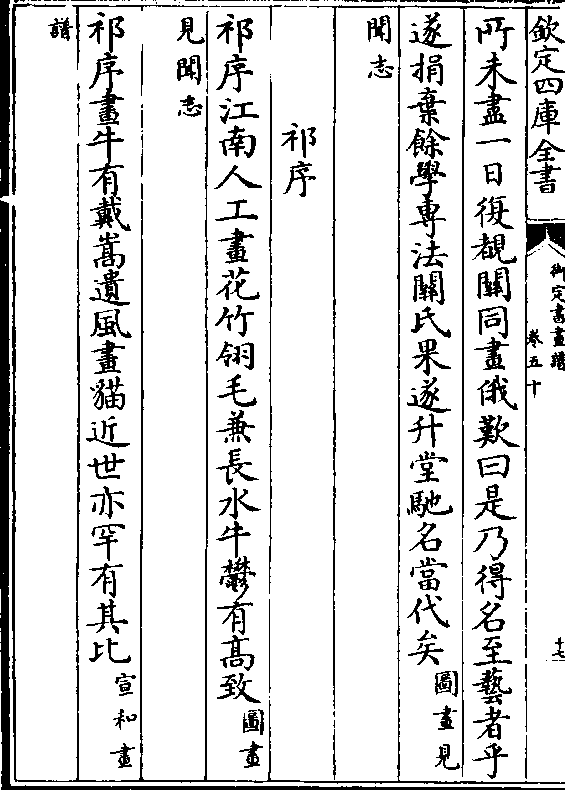 欽定四庫全書
御定書畫譜
卷五十
十七
所未盡一日復覩關同畫俄歎曰是乃得名至藝者乎
遂捐棄餘學專法關氏果遂升堂馳名當代矣圖畫見
聞志
祁序
祁序江南人工畫花竹翎毛兼長水牛鬱有髙致圖畫
見聞志
祁序畫牛有戴嵩遺風畫貓近世亦罕有其比宣和畫
譜